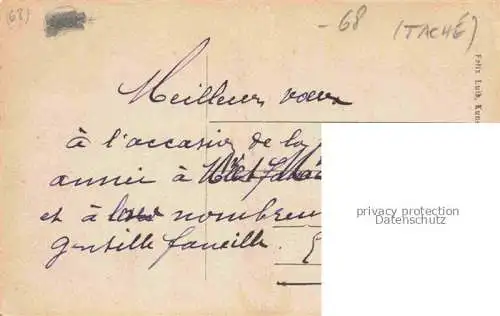 (68)
- 68 (TACHÉ)
Meilleurs vœux
à l'occasion de la
année à
et à leur nombreu
gentille famille.
Felix Luib, Kuns
privacy protection
Datenschutz